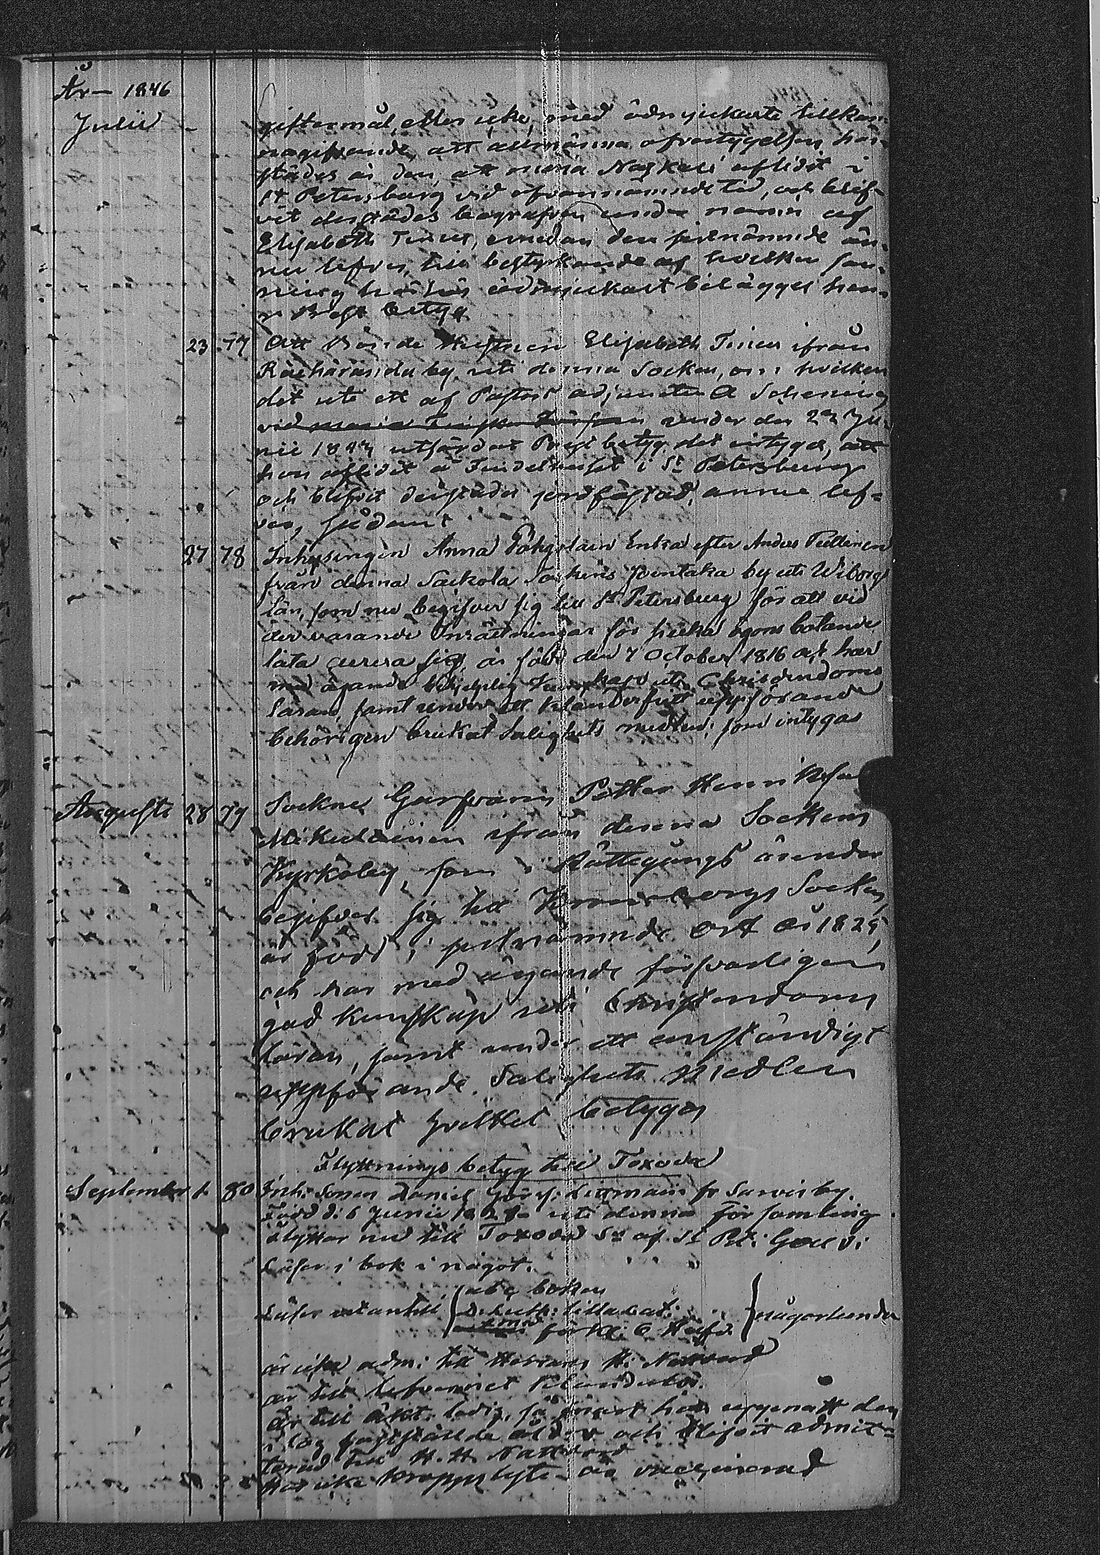 År 1846
Julii
giftermål eller icke, med ödmjukaste tillkän-
nagifvande, att allmänna öfvertygelsen här-
städes är den, att Maskeli aflidit i
St Petersburg vid ofvannämnde tid, och blif-
vit derstädes begrafven under namn af
Elisabeth Tinus, emedan den förenämnde än-
nu lefver, till bestyrkande af hvilken san-
ning här hos ödmjukast bilägges hen-
nes Prest betyg
23 77 Att Bonde Hustrun Elisabeth Tinus ifrån
by uti denna Socken, om hvilken
det uti ett af Pastors adjuncten A Schening
vid under den 22 Ju-
nii 184 utfärdat Prest betyg det intygas, att
hon aflidit å Findelhuset i St Petersburg
och blifvit derstädes jordfästad, ännu lef-
ver, sådant
27 78 Inhysingen Anna Pohjolain Enka efter Anders Pellinen
från denna Sackola Sockens by uti Wiborgs
län, som nu begifver sig till St Petersburg för att vid
der varande Inrättningar för sjuka ögons botande
låta curera sig, är född den 7 October 1816 och har
med ägande Kunskap uti Christendoms
Läran, samt under ett klanderfritt uppförande
behörigen brukat Salighets medlen; som intygas
Augusti 28 79 Sockne Garfvaren Petter Henriksson
Mikulainen ifrån denna Sockens
Kyrkoby, som i Rättegångs ärender
begifver sig till Kronoborgs Socken,
är född i sistnämnde Ort år 1825,
och har med ägande försvarligen
god kunskap uti Christendoms
Läran, samt under ett anständigt
uppförande Salighets Medlen
brukat hvilket betygas
Flyttnings betyg till Toxova
September 1. 80 Inh: Sonen Daniel Görsj: Littmain fr by.
Född d: 6 Junii 18 uti denna församling
flyttar nu till Toxova Sn af St Pet: Gouv:
Läser i bok i något.
Läser utantill abc boken
D. Luth: lilla cat:
någorlunda
är icke adm: till Herrans H: Nattvard
är till lefvernet
Är till äkt: ledig, så snart han uppnått den
i lag föreställde ålder och blifvit admit-
terad till H. H. Nattvard
Har icke kroppslyte är vaccinerad